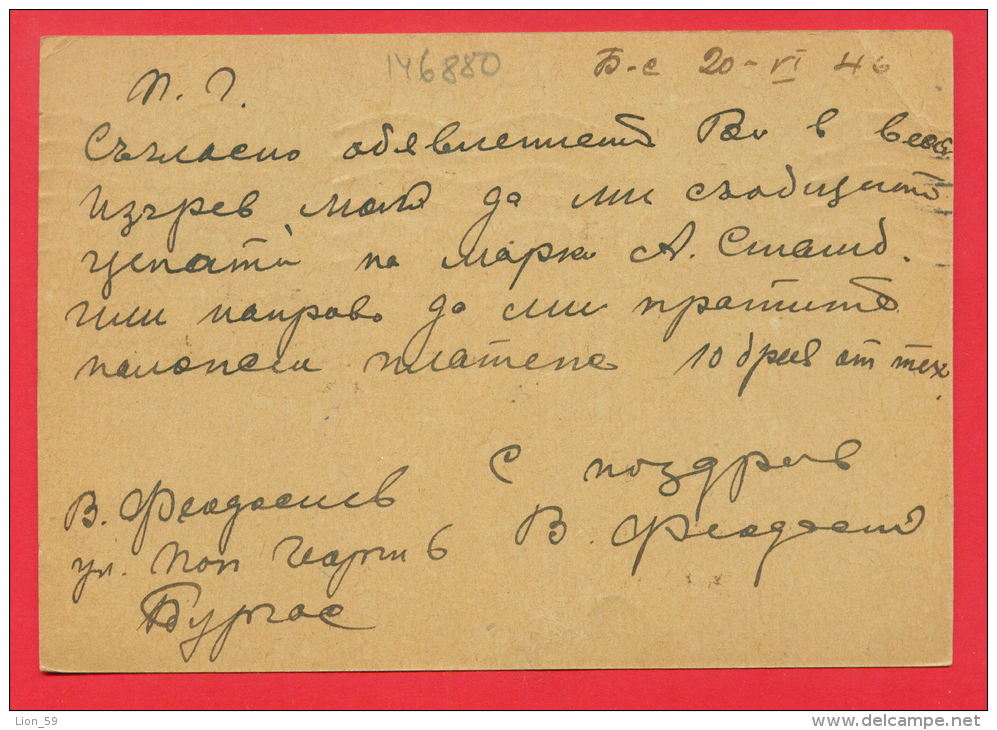 146880 Б-с 20-VI 46
П. Г.
Съгласно обявлението Ви в вест.
Изгрев моля да ми съобщите
цената на марки А. Стамб.
или направо да ми пратите
наложен платеж 10 броя от тех.
С поздрав
В. Феодосиев В. Феодосиев
ул. Поп Георги 6
Бургас
Lion_59
www.delcampe.net